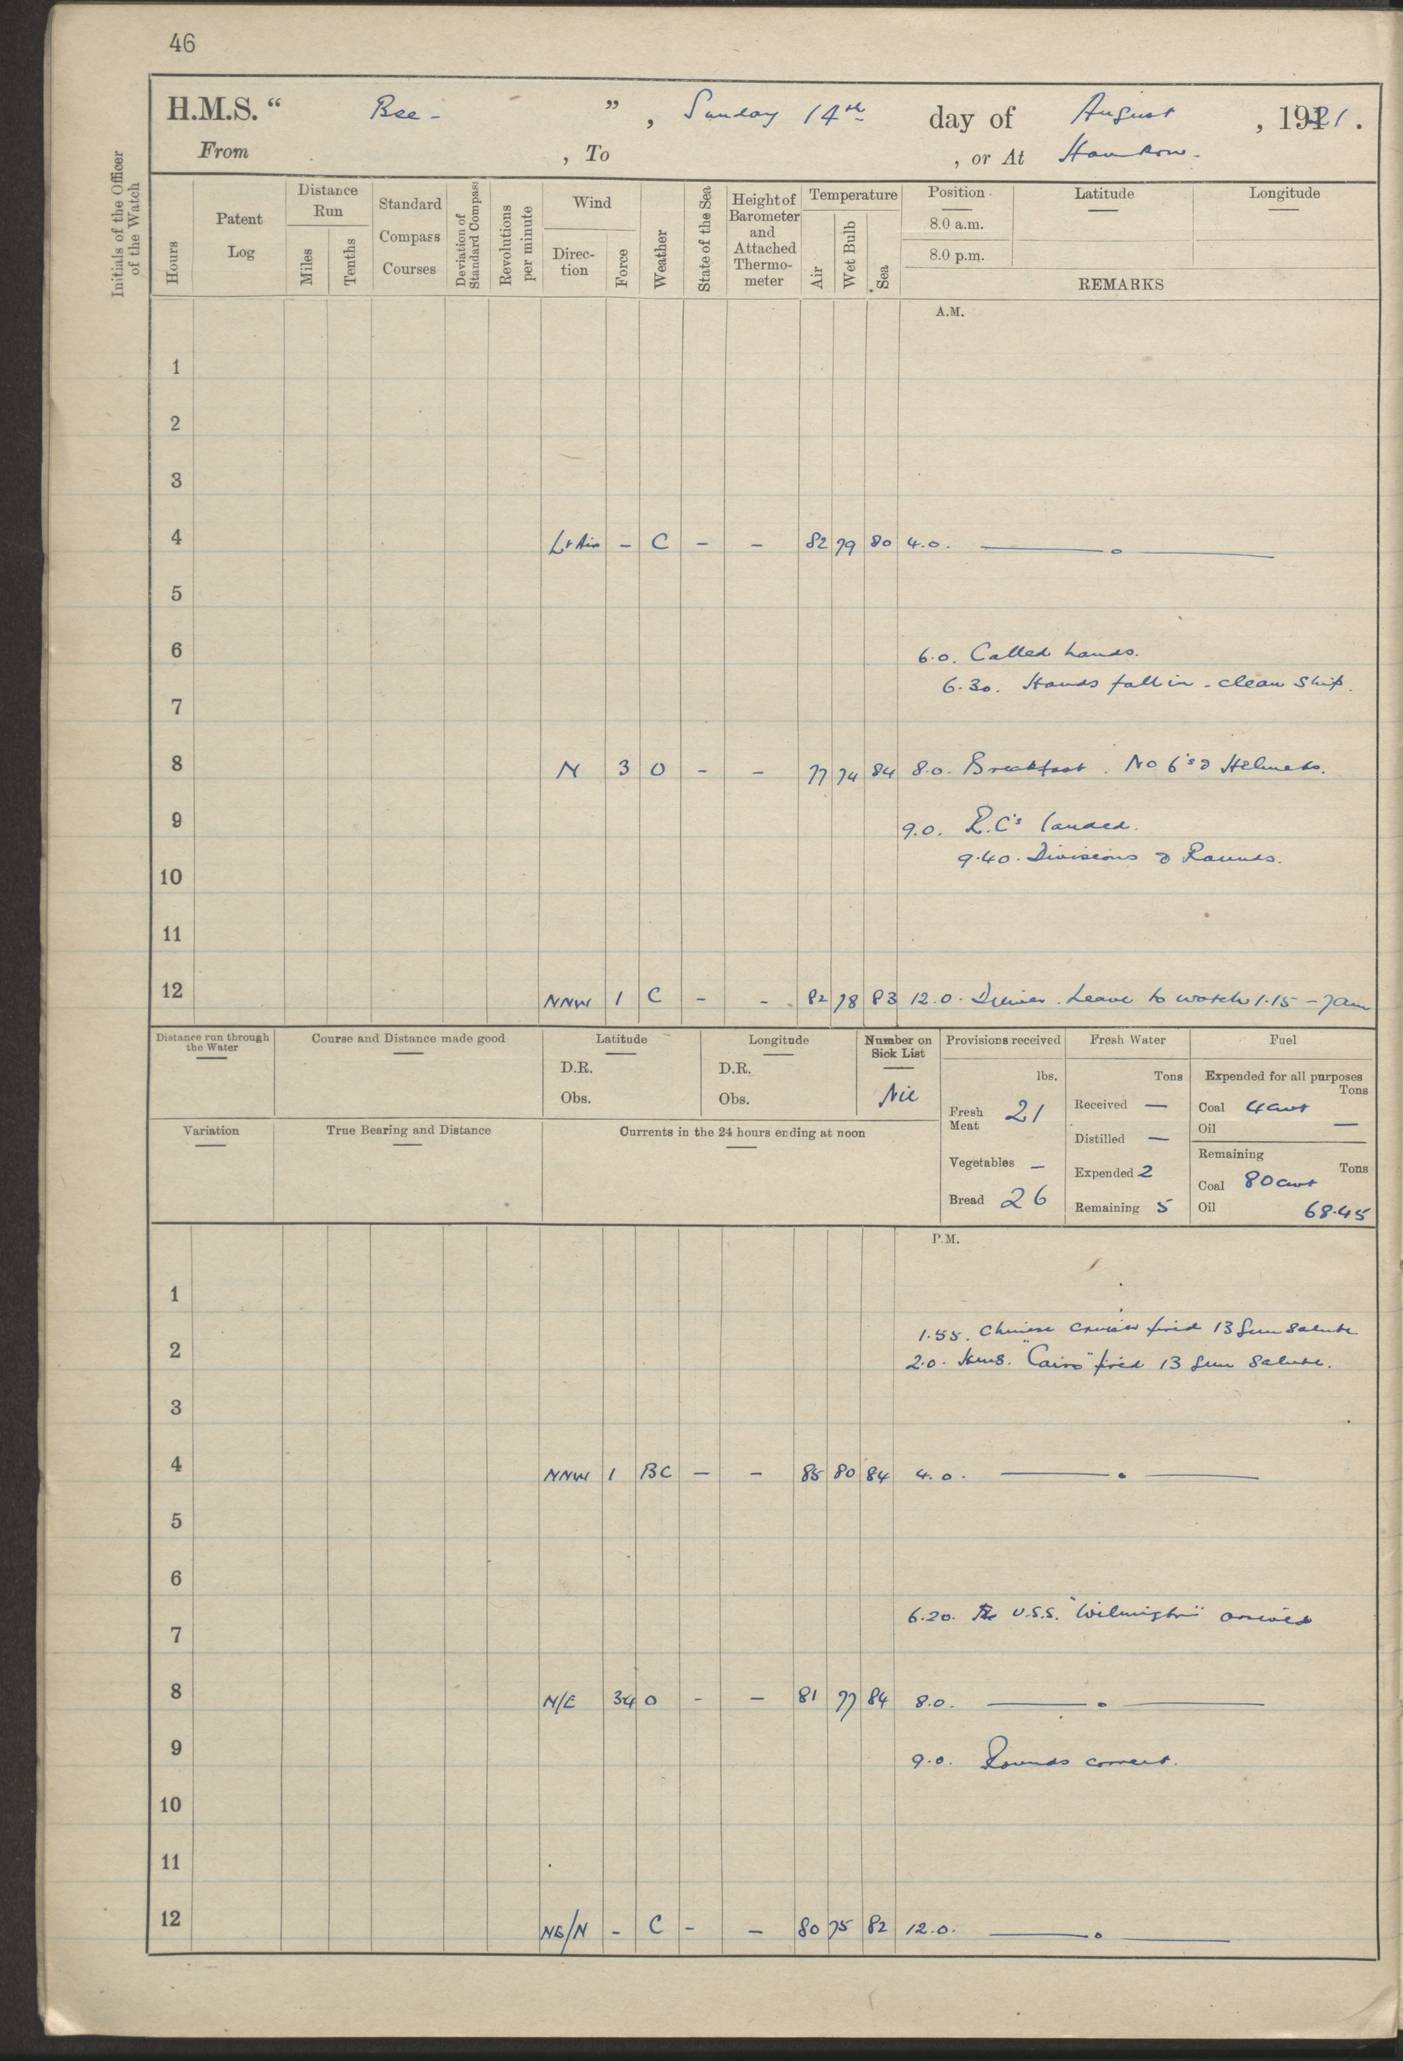 46
H.M.S. “ Bee - ” , Sunday 14th day of August , 1921 .
From , To , or At Hankow -
Initials of the Officer of the Watch
Hours
Patent Log
Distance Run
Miles
Tenths
Standard Compass Courses
Deviation of Standard Compass
Revolutions per minute
Wind
Direc-tion
Force
Weather
State of the Sea
Height of Barometer and Attached Thermo-meter
Temperature
Air
Wet Bulb
Sea
Position
8.0 a.m.
8.0 p.m.
Latitude
Longitude
REMARKS
A.M.
1
2
3
4 Lt Air - C - - 82 79 80 4.0.
5
6 6.0. Called hands.
6.30. Hands fall in - clean ship.
7
8 N 3 O - - 77 74 84 8.0. Breakfast. No 6's & Helmets.
9 9.0. R.C's landed.
9.40. Divisions & Rounds.
10
11
12 NNW 1 C - - 82 78 83 12.0. Dinner. Leave to watch 1.15 - 7am
Distance run through the Water
Course and Distance made good
Latitude
D.R.
Obs.
Longitude
D.R.
Obs.
Number on Sick List
Nil
Provisions received
lbs.
Fresh Meat 21
Vegetables -
Bread 26
Fresh Water
Tons
Received -
Distilled -
Expended 2
Remaining 5
Fuel
Expended for all purposes
Tons
Coal 4cwt
Oil -
Remaining
Tons
Coal 80cwt
Oil 68.45
Variation
True Bearing and Distance
Currents in the 24 hours ending at noon
P.M.
1
1.55. Chinese cruiser fired 13 Gun Salute
2 2.0. H.M.S. "Cairo" fired 13 Gun Salute.
3
4 NNW 1 BC - - 85 80 84 4.0.
5
6
6.20. The U.S.S. "Wilmington" arrived
7
8 N/E 34 O - - 81 77 84 8.0.
9 9.0. Rounds correct.
10
11
12 NE/N - C - - 80 75 82 12.0.